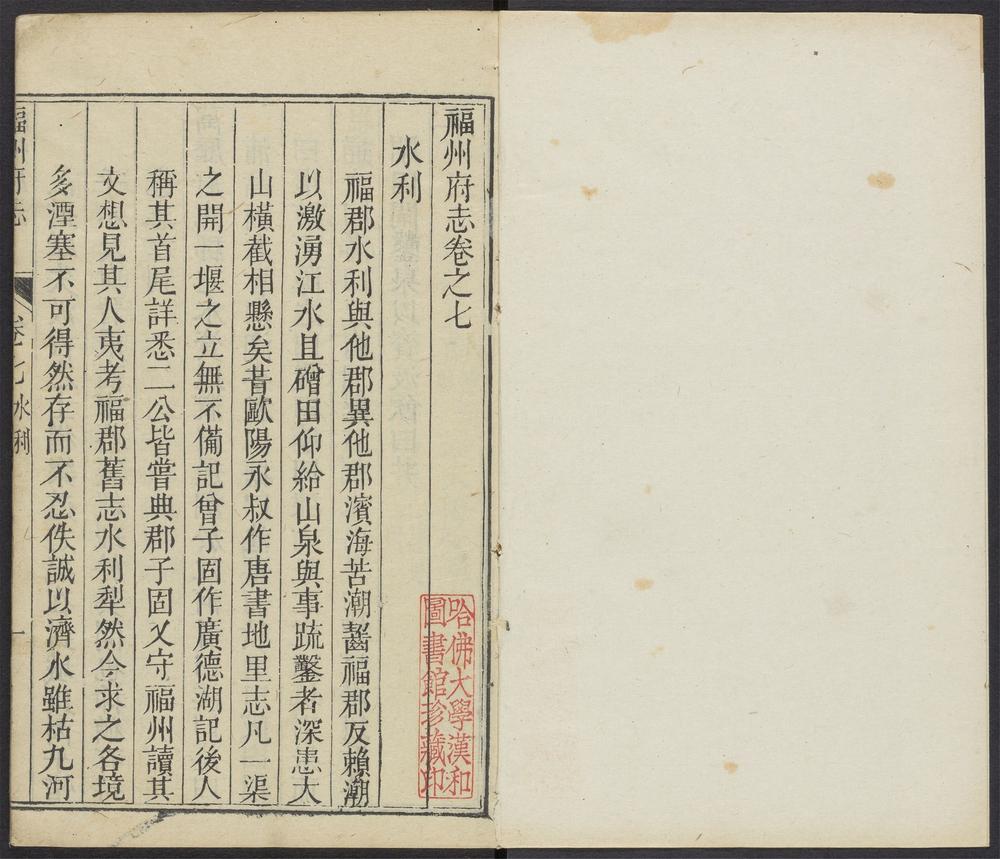 福州府志卷之七
水利
福郡水利與他郡異他郡濱海苦潮齧福郡反賴潮
以激湧江水且磳田仰給山泉與事疏鑿者深患大
山橫截相懸矣昔歐陽永叔作唐書地里志凡一渠
之開一堰之立無不備記曾子固作廣德湖記後人
稱其首尾詳悉二公皆嘗典郡子固又守福州讀其
文想見其人夷考福郡舊志水利犁然今求之各境
多湮塞不可得然存而不忍佚誠以濟水雖枯九河
福州府志
卷七水利
一
哈佛大學漢和
圖書館珍藏印